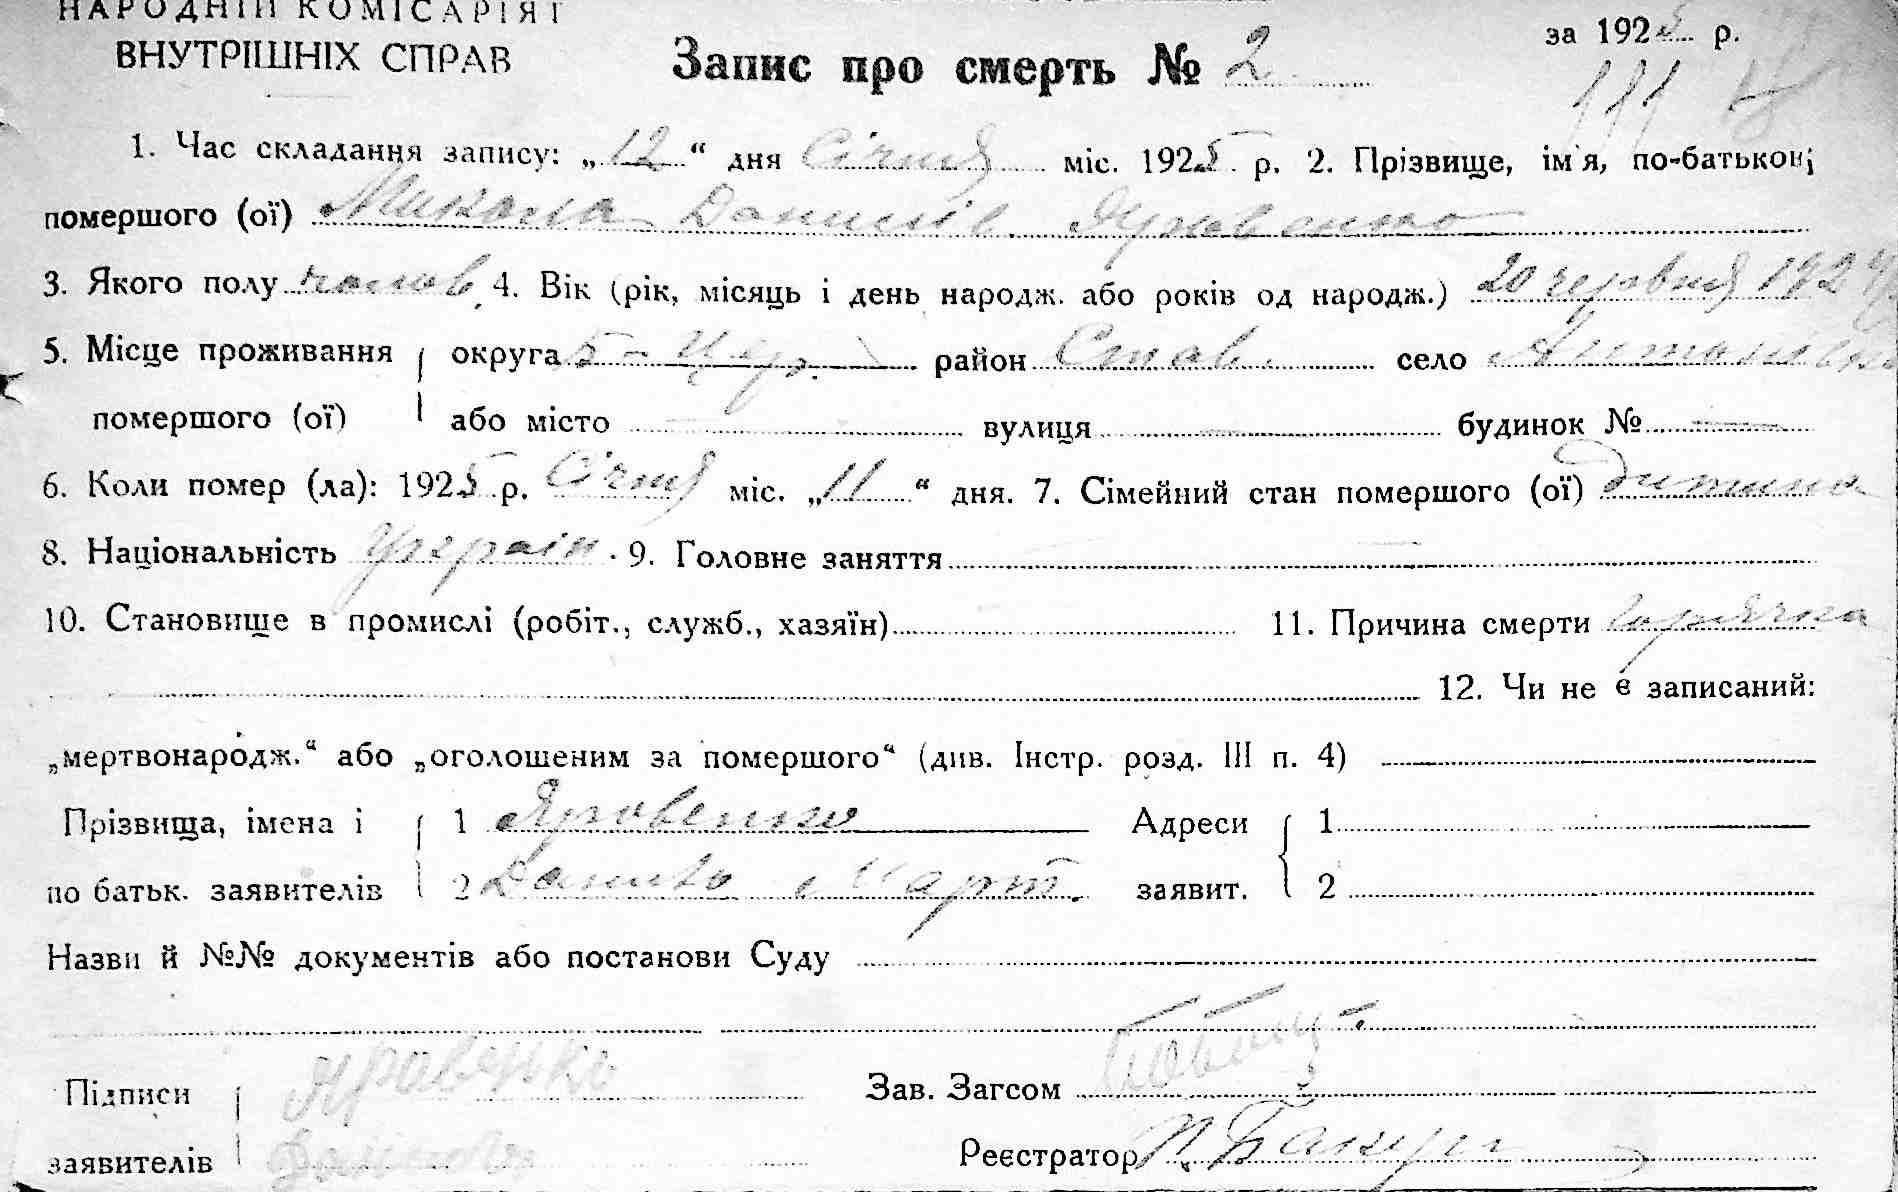 НАРОДНІЙ КОМІСАРІЯТ
ВНУТРІШНІХ СПРАВ
Запис про смерть № 2
за 1925 р.
1. Час складання запису: „12“ дня Січня міс. 1925 р. 2. Прізвище, ім'я, по-батькові
помершого (ої) Микола Данилів Яровенко
3. Якого полу чолов 4. Вік (рік, місяць і день народж. або років од народж.) 20 червня 1924
5. Місце проживання округа Б-Цер. район Став. село
помершого (ої) або місто — вулиця — будинок № —
6. Коли помер (ла): 1925 р. Січня міс. „11“ дня. 7. Сімейний стан помершого (ої) дитина
8. Національність Україн. 9. Головне заняття —
10. Становище в промислі (робіт., служб., хазяїн) 11. Причина смерти горячка
12. Чи не є записаний:
„мертвонародж.“ або „оголошеним за помершого“ (див. Інстр. розд. III п. 4)
Прізвища, імена і 1 Яровенко Адреси 1
по батьк. заявителів 2 Данило Март. заявит. 2
Назви й №№ документів або постанови Суду
Підписи Яравенко Зав. Загсом
заявителів Реєстратор